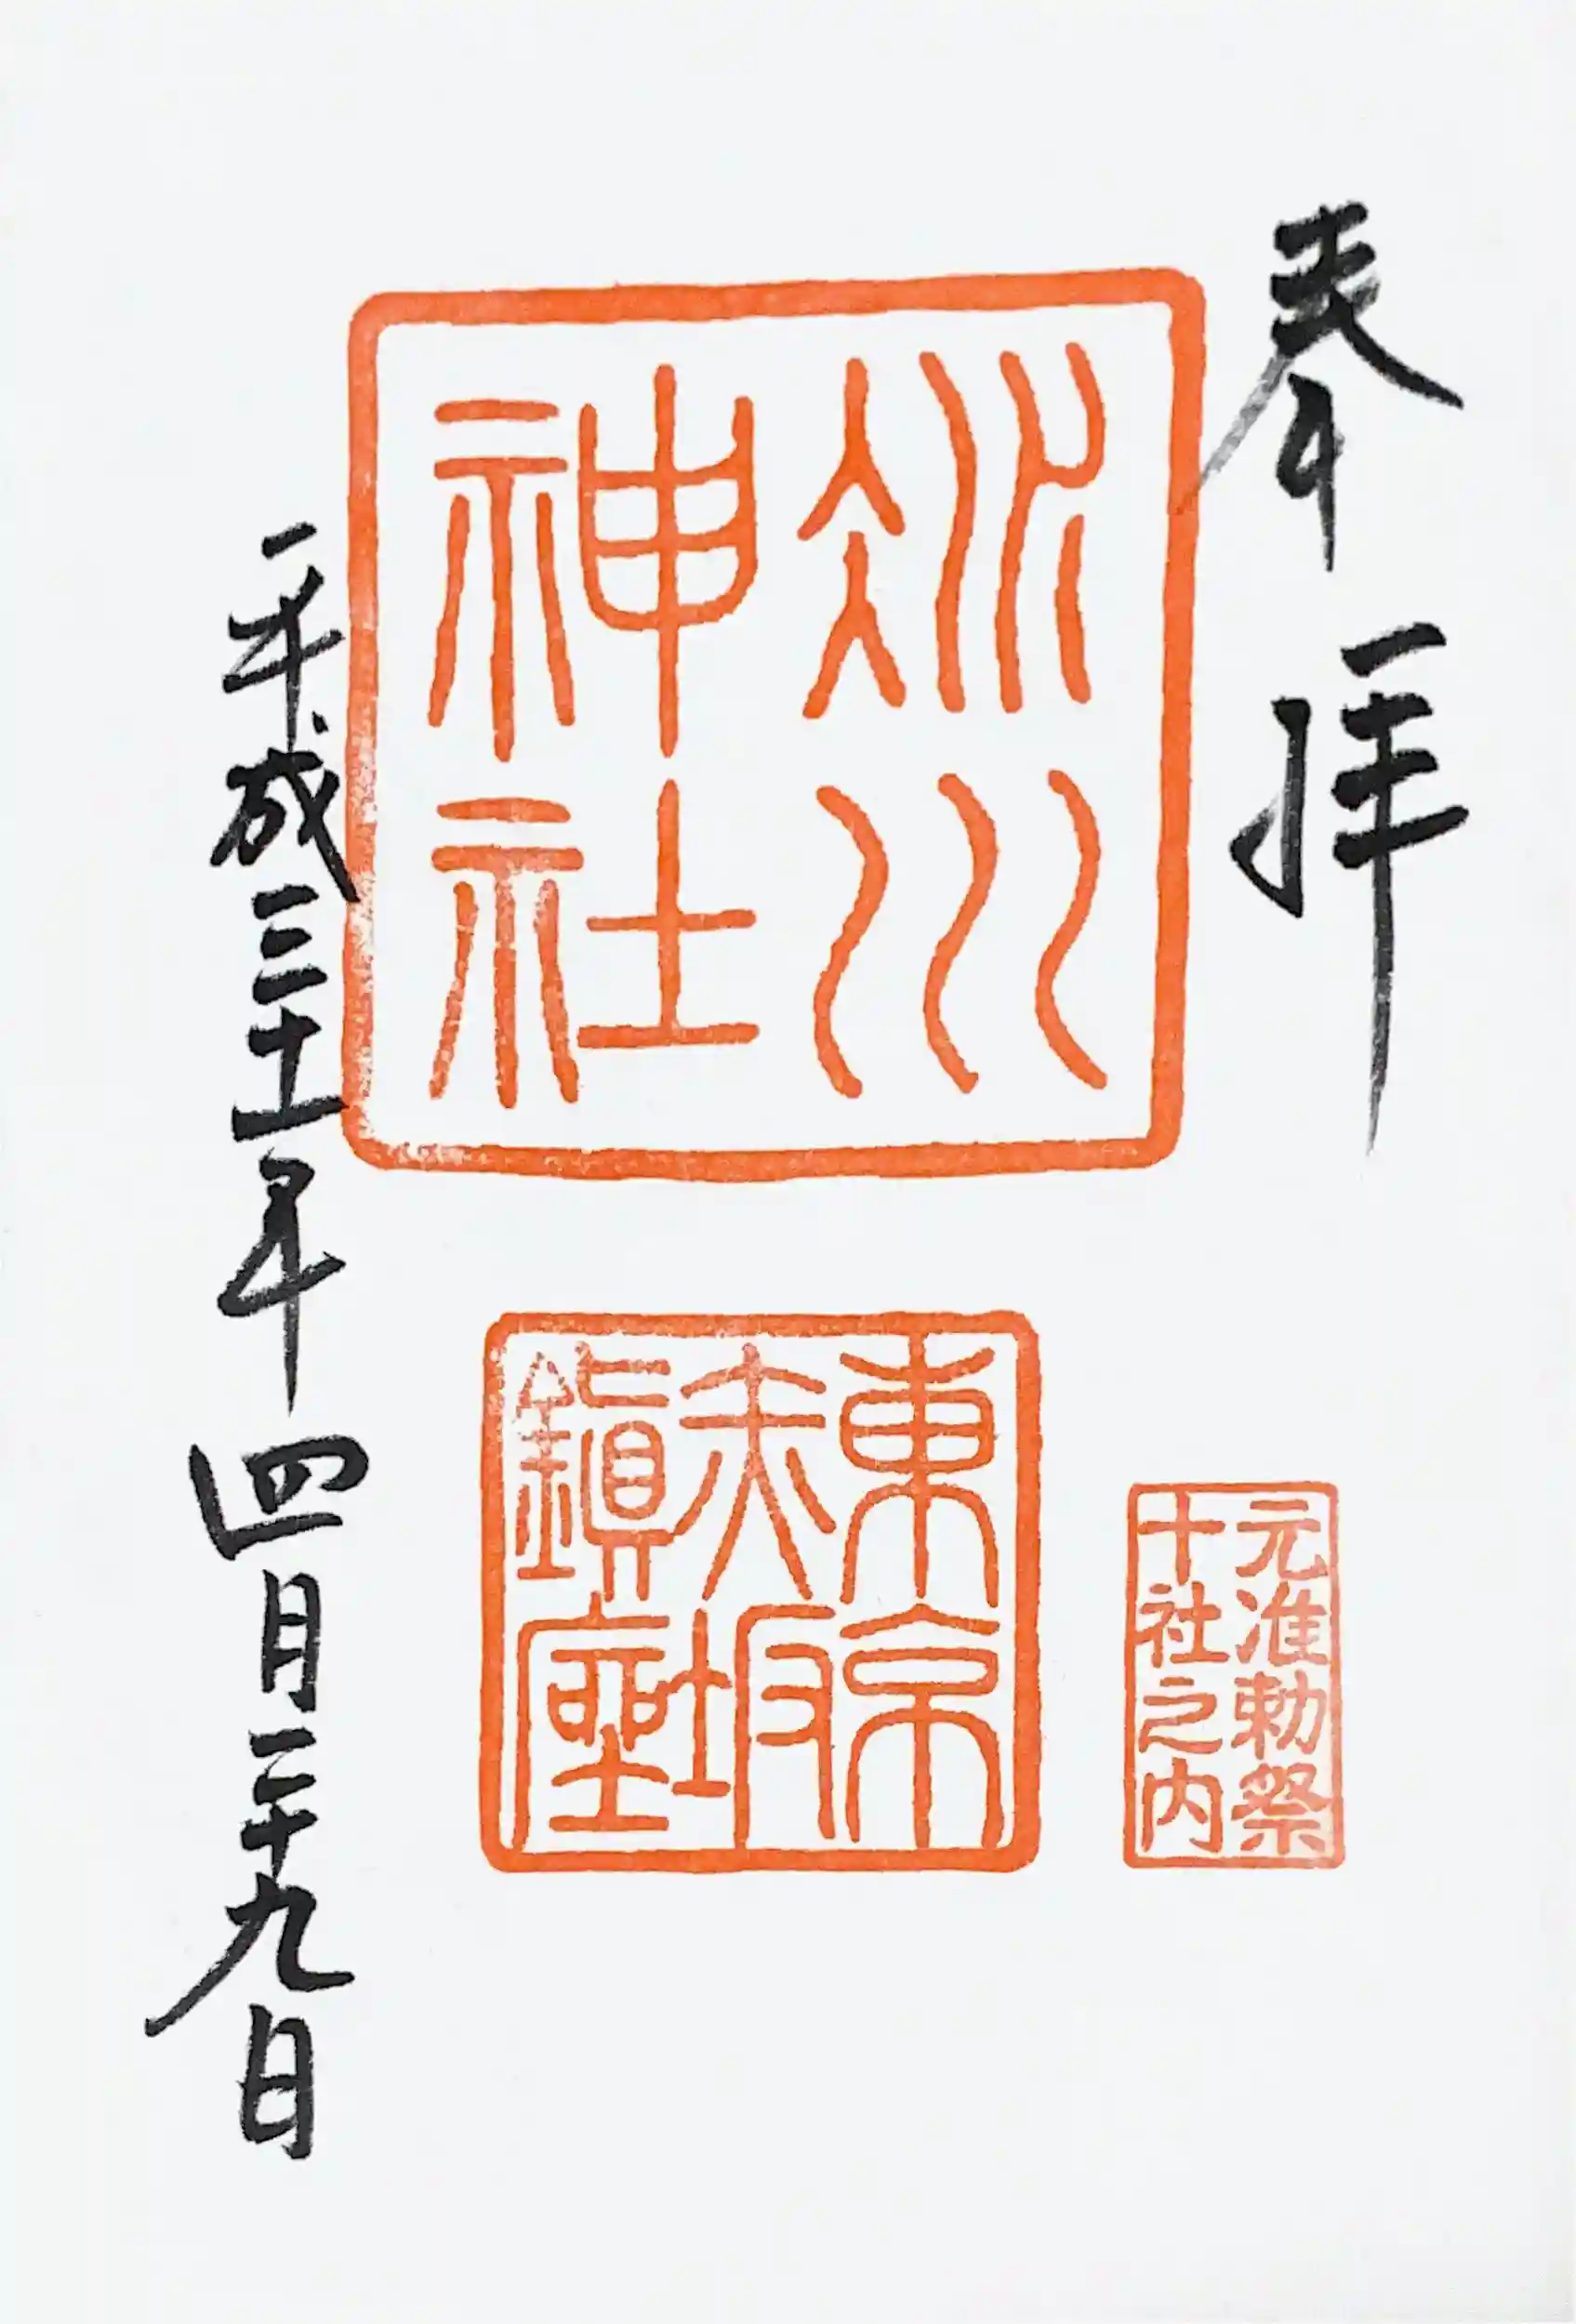 奉拝
冰川
神社
東京
赤坂
鎭座
元准勅祭
十社之内
平成三十一年四月二十九日